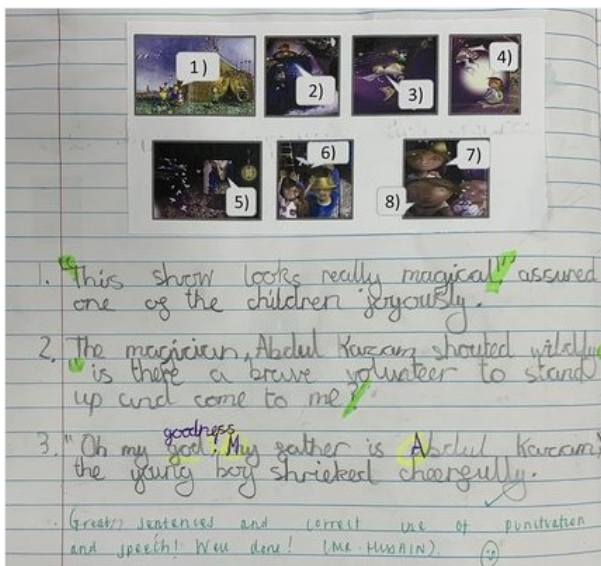 1)
2)
3)
4)
5)
6)
7)
8)
1. "This show looks really magical" assured
one of the children joyously.
2. The magician, Abdul Karzam shouted wildly
" is there a brave volunteer to stand
up and come to me?"
goodness
3. "Oh my god! My father is Abdul Karzam,"
the young boy shrieked cheergully.
Great sentences and correct use of punctuation
and speech! Well done! (MR. HUSAIN).